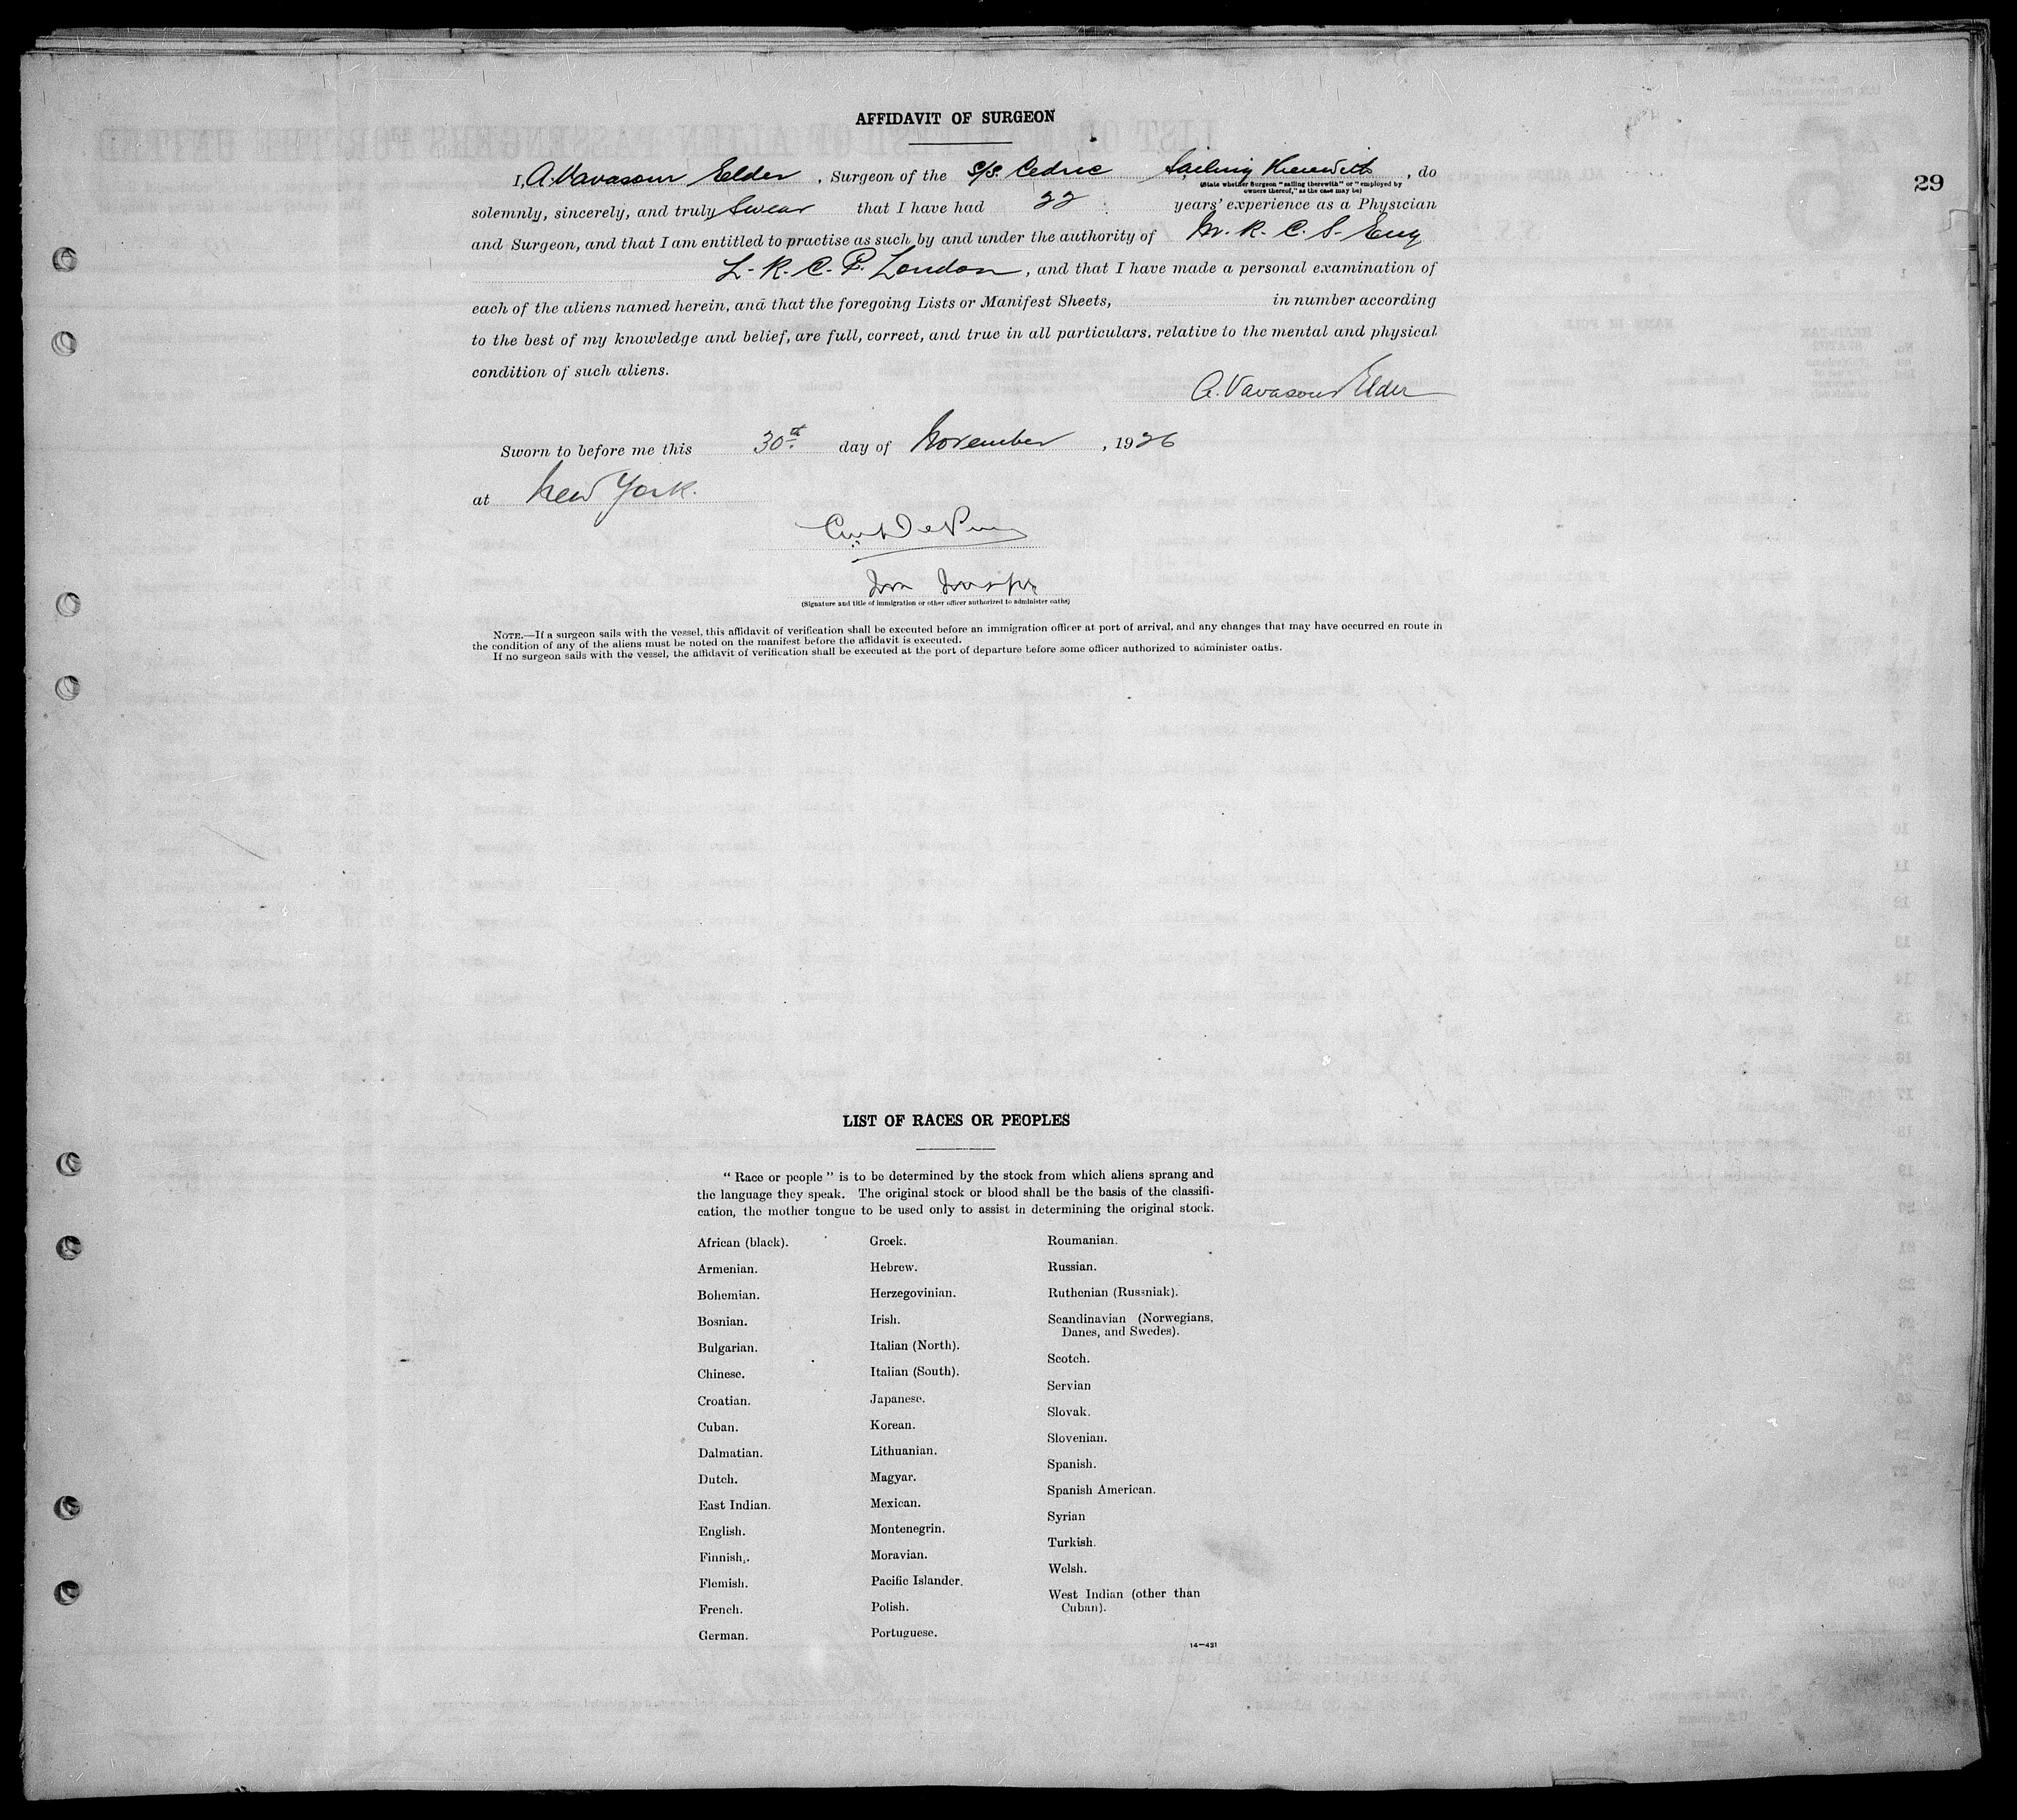 AFFIDAVIT OF SURGEON
29
I, A. Vavasour Elder, Surgeon of the S/S. Cedric Sailing therewith, do
(State whether Surgeon "sailing therewith" or "employed by
owners thereof," as the case may be)
solemnly, sincerely, and truly swear that I have had 22 years' experience as a Physician
and Surgeon, and that I am entitled to practise as such by and under the authority of M. R. C. S. Eng
L. R. C. P. London, and that I have made a personal examination of
each of the aliens named herein, and that the foregoing Lists or Manifest Sheets, in number according
to the best of my knowledge and belief, are full, correct, and true in all particulars, relative to the mental and physical
condition of such aliens.
A. Vavasour Elder
Sworn to before me this 30th day of November, 1926
at New York.
(Signature and title of immigration or other officer authorized to administer oaths)
NOTE.—If a surgeon sails with the vessel, this affidavit of verification shall be executed before an immigration officer at port of arrival, and any changes that may have occurred en route in
the condition of any of the aliens must be noted on the manifest before the affidavit is executed.
If no surgeon sails with the vessel, the affidavit of verification shall be executed at the port of departure before some officer authorized to administer oaths.
LIST OF RACES OR PEOPLES
"Race or people" is to be determined by the stock from which aliens sprang and
the language they speak. The original stock or blood shall be the basis of the classifi-
cation, the mother tongue to be used only to assist in determining the original stock.
African (black).
Armenian.
Bohemian.
Bosnian.
Bulgarian.
Chinese.
Croatian.
Cuban.
Dalmatian.
Dutch.
East Indian.
English.
Finnish.
Flemish.
French.
German.
Greek.
Hebrew.
Herzegovinian.
Irish.
Italian (North).
Italian (South).
Japanese.
Korean.
Lithuanian.
Magyar.
Mexican.
Montenegrin.
Moravian.
Pacific Islander.
Polish.
Portuguese.
Roumanian.
Russian.
Ruthenian (Russniak).
Scandinavian (Norwegians,
Danes, and Swedes).
Scotch.
Servian
Slovak.
Slovenian.
Spanish.
Spanish American.
Syrian
Turkish.
Welsh.
West Indian (other than
Cuban).
14—431